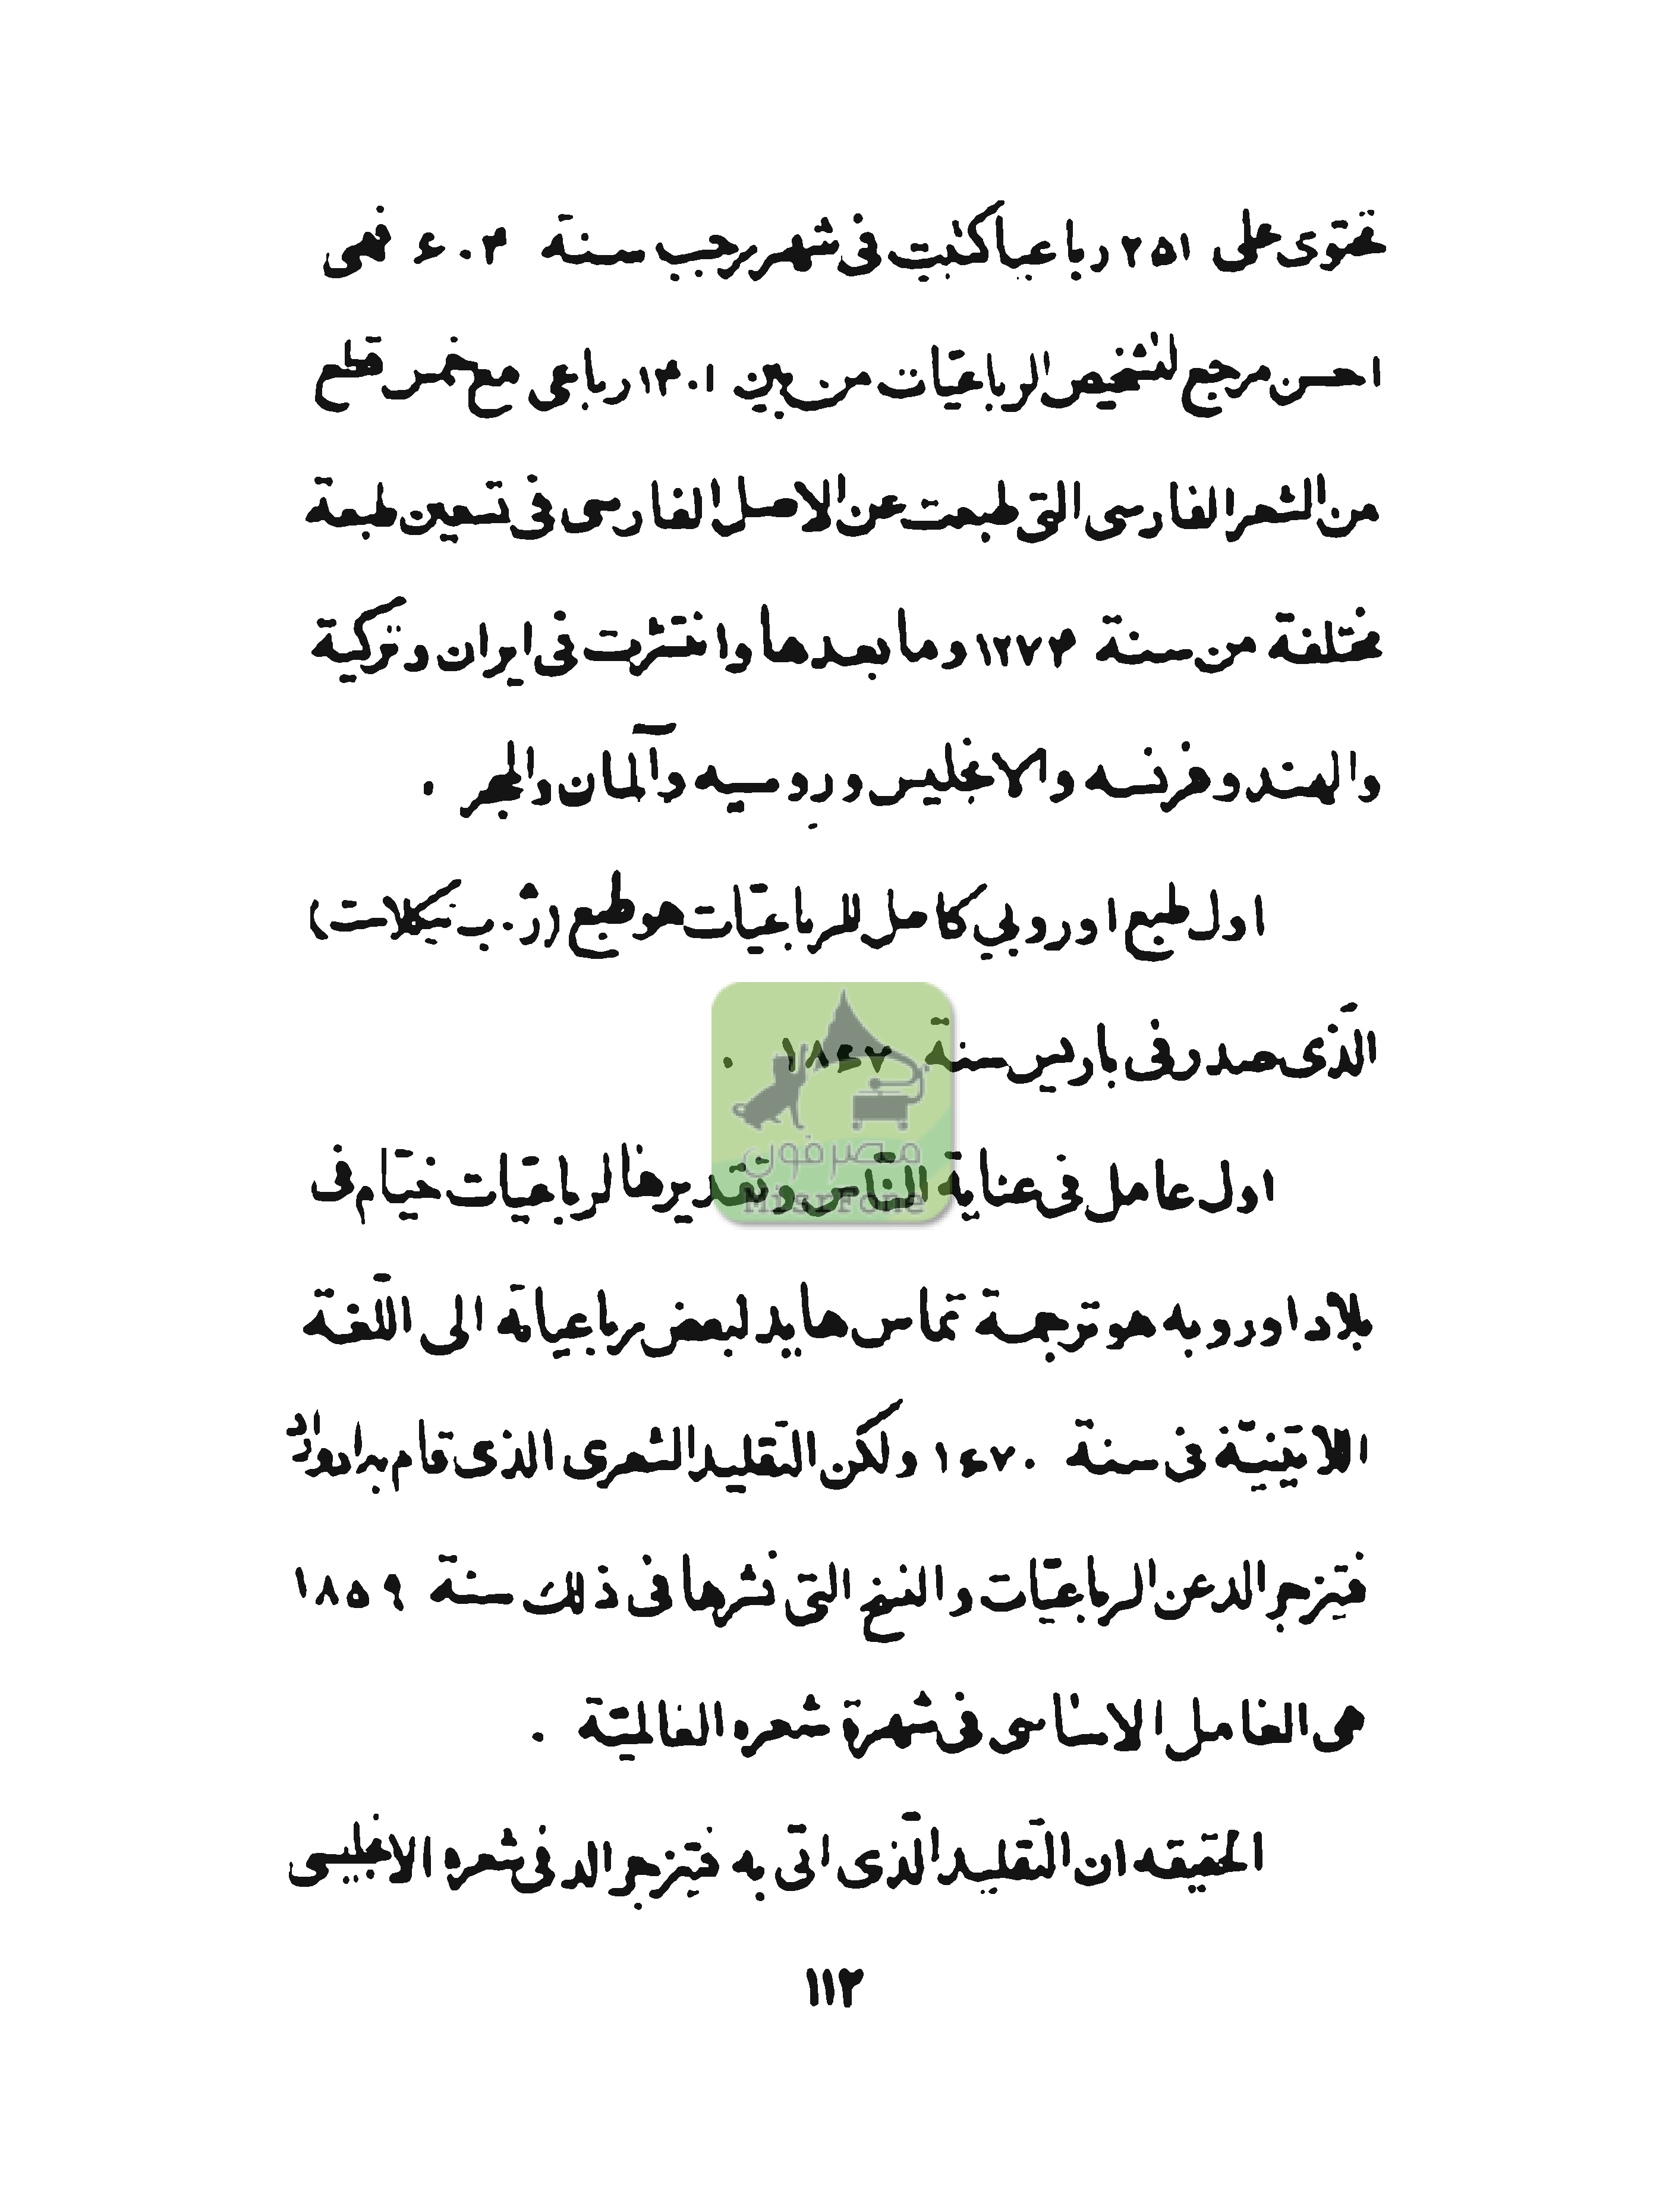 تحتوى على ٢٥١ رباعيا كتبت فى شهر رجب سنة ٦٠٤ فهى
احسن مرجع لتشخيص الرباعيّات من بين ١٣٠١ رباعى مع خمس قطع
من الشعر الفارسى التى طبعت عن الاصل الفارسى فى تسعين طبعة
مختلفة من سنة ١٢٧٤ وما بعدها وانتشرت فى ايران وتركية
والهند وفرنسه والانجليس وروسيه وآلمان والمجر .
اول طبع اوروبي كامل للرباعيّات هو طبع (ژ. ب نيكلاست)
الّذى صدر فى باريس سنة ١٨٤٧ .
مصرفون
MisrFone
اول عامل فى عناية النّاس وتقديرها لرباعيّات خيّام فى
بلاد اوروبه هو ترجمة تماس هايد لبعض رباعياته الى اللّغة
اللاتينيّة فى سنة ١٤٧٠ ولكن التقليد الشعرى الذى قام به ادوارد
فيتزجرالد عن الرباعيّات والنسخ التى نشرها فى ذلك سنة ١٨٥٩
هى العامل الاساسى فى شهرة شعره العالميّة .
الحقيقه ان التقليد الّذى اتى به فيتزجرالد فى شعره الانجليسى
١١٢